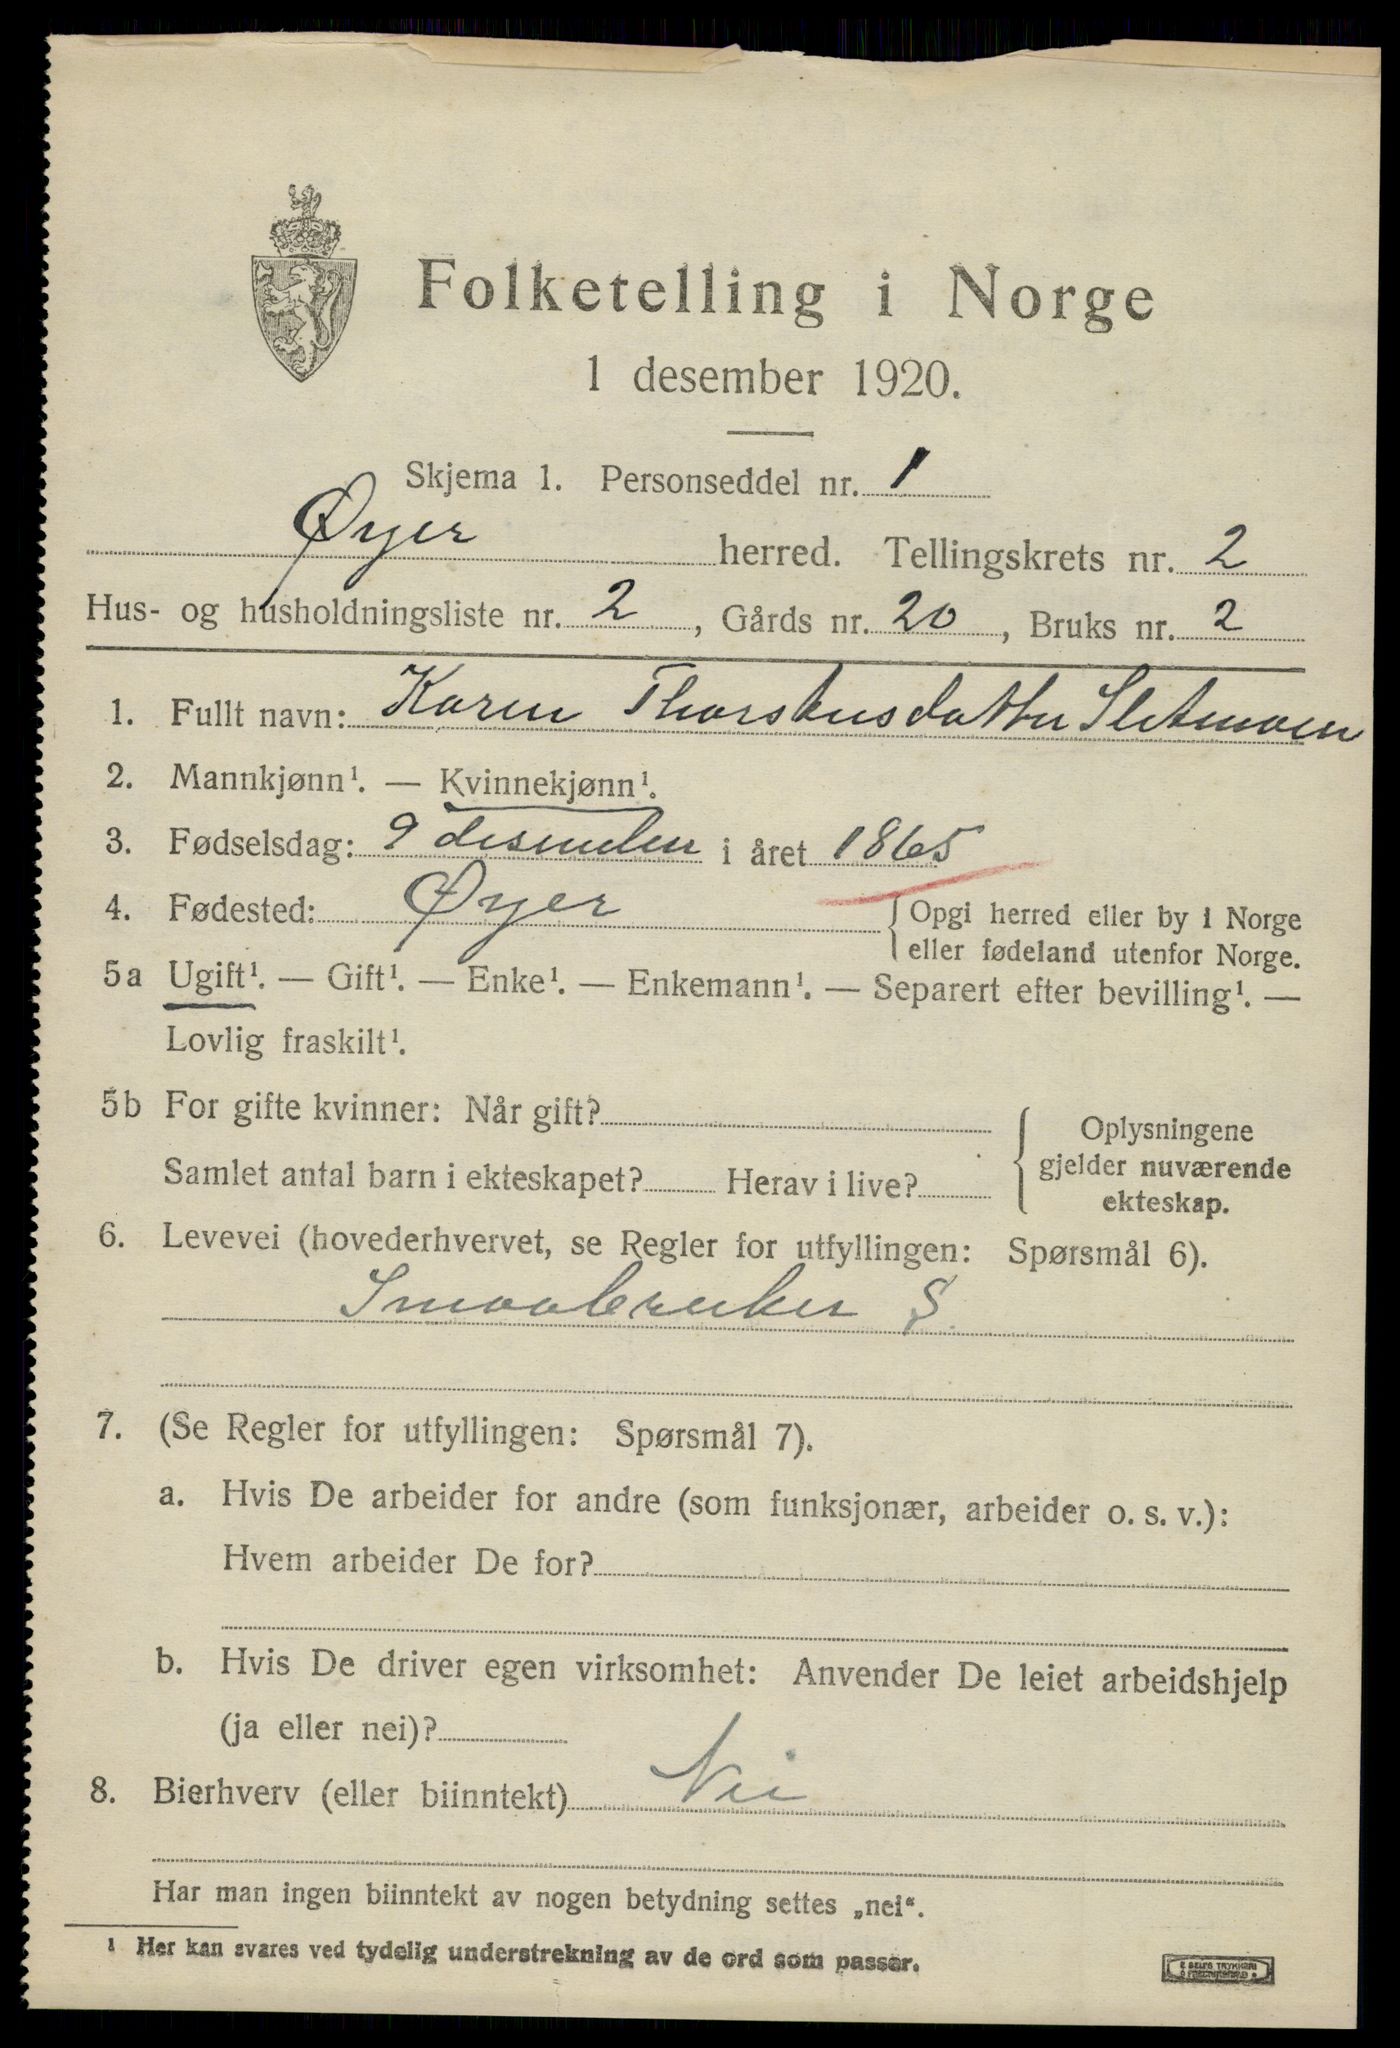 Folketelling i Norge
1 desember 1920.
Skjema 1. Personseddel nr. 1
Øyer herred. Tellingskrets nr. 2
Hus- og husholdningsliste nr. 2, Gårds nr. 20, Bruks nr. 2
1. Fullt navn: Karen Thorstensdatter Sletmoen
2. Mannkjønn¹. — Kvinnekjønn¹.
3. Fødselsdag: 9 desember i året 1865
4. Fødested: Øyer { Opgi herred eller by i Norge
eller fødeland utenfor Norge.
5a Ugift¹. — Gift¹. — Enke¹. — Enkemann¹. — Separert efter bevilling¹. —
Lovlig fraskilt¹.
5b For gifte kvinner: Når gift?
Samlet antal barn i ekteskapet? Herav i live?
Oplysningene
gjelder nuværende
ekteskap.
6. Levevei (hovederhvervet, se Regler for utfyllingen: Spørsmål 6).
Smaabruker S
7. (Se Regler for utfyllingen: Spørsmål 7).
a. Hvis De arbeider for andre (som funksjonær, arbeider o. s. v.):
Hvem arbeider De for?
b. Hvis De driver egen virksomhet: Anvender De leiet arbeidshjelp
(ja eller nei)?
8. Bierhverv (eller biinntekt) Nei
Har man ingen biinntekt av nogen betydning settes „nei“.
¹ Her kan svares ved tydelig understrekning av de ord som passer.